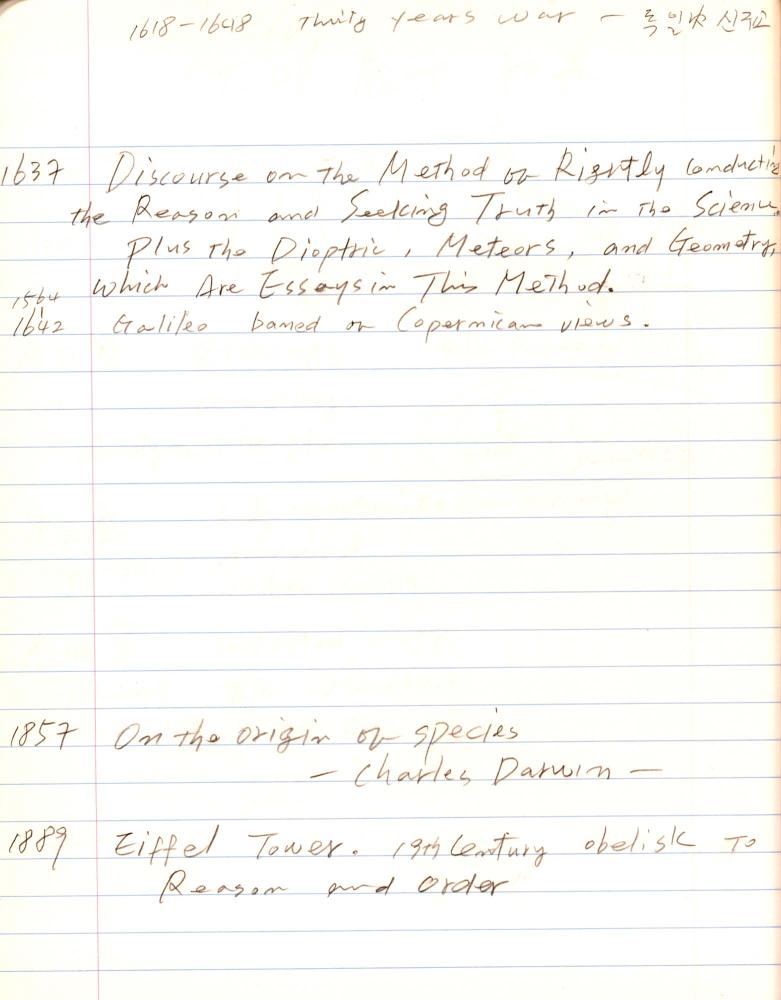 1618-1648 Thirty years war - 독일內 신구교
1637 Discourse on the Method of Rightly Conducting
the Reason and Seeking Truth in the Science,
Plus the Dioptric, Meteors, and Geometry,
Which Are Essays in This Method.
1564
1642 Galileo baned on Copernican views.
1857 On the origin of species
- Charles Darwin -
1889 Eiffel Tower. 19th Century obelisk To
Reason and order